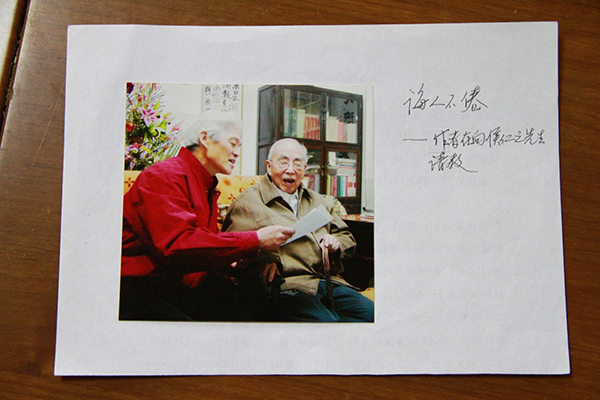 诲人不倦
——作者在向侯仁之先生
请教